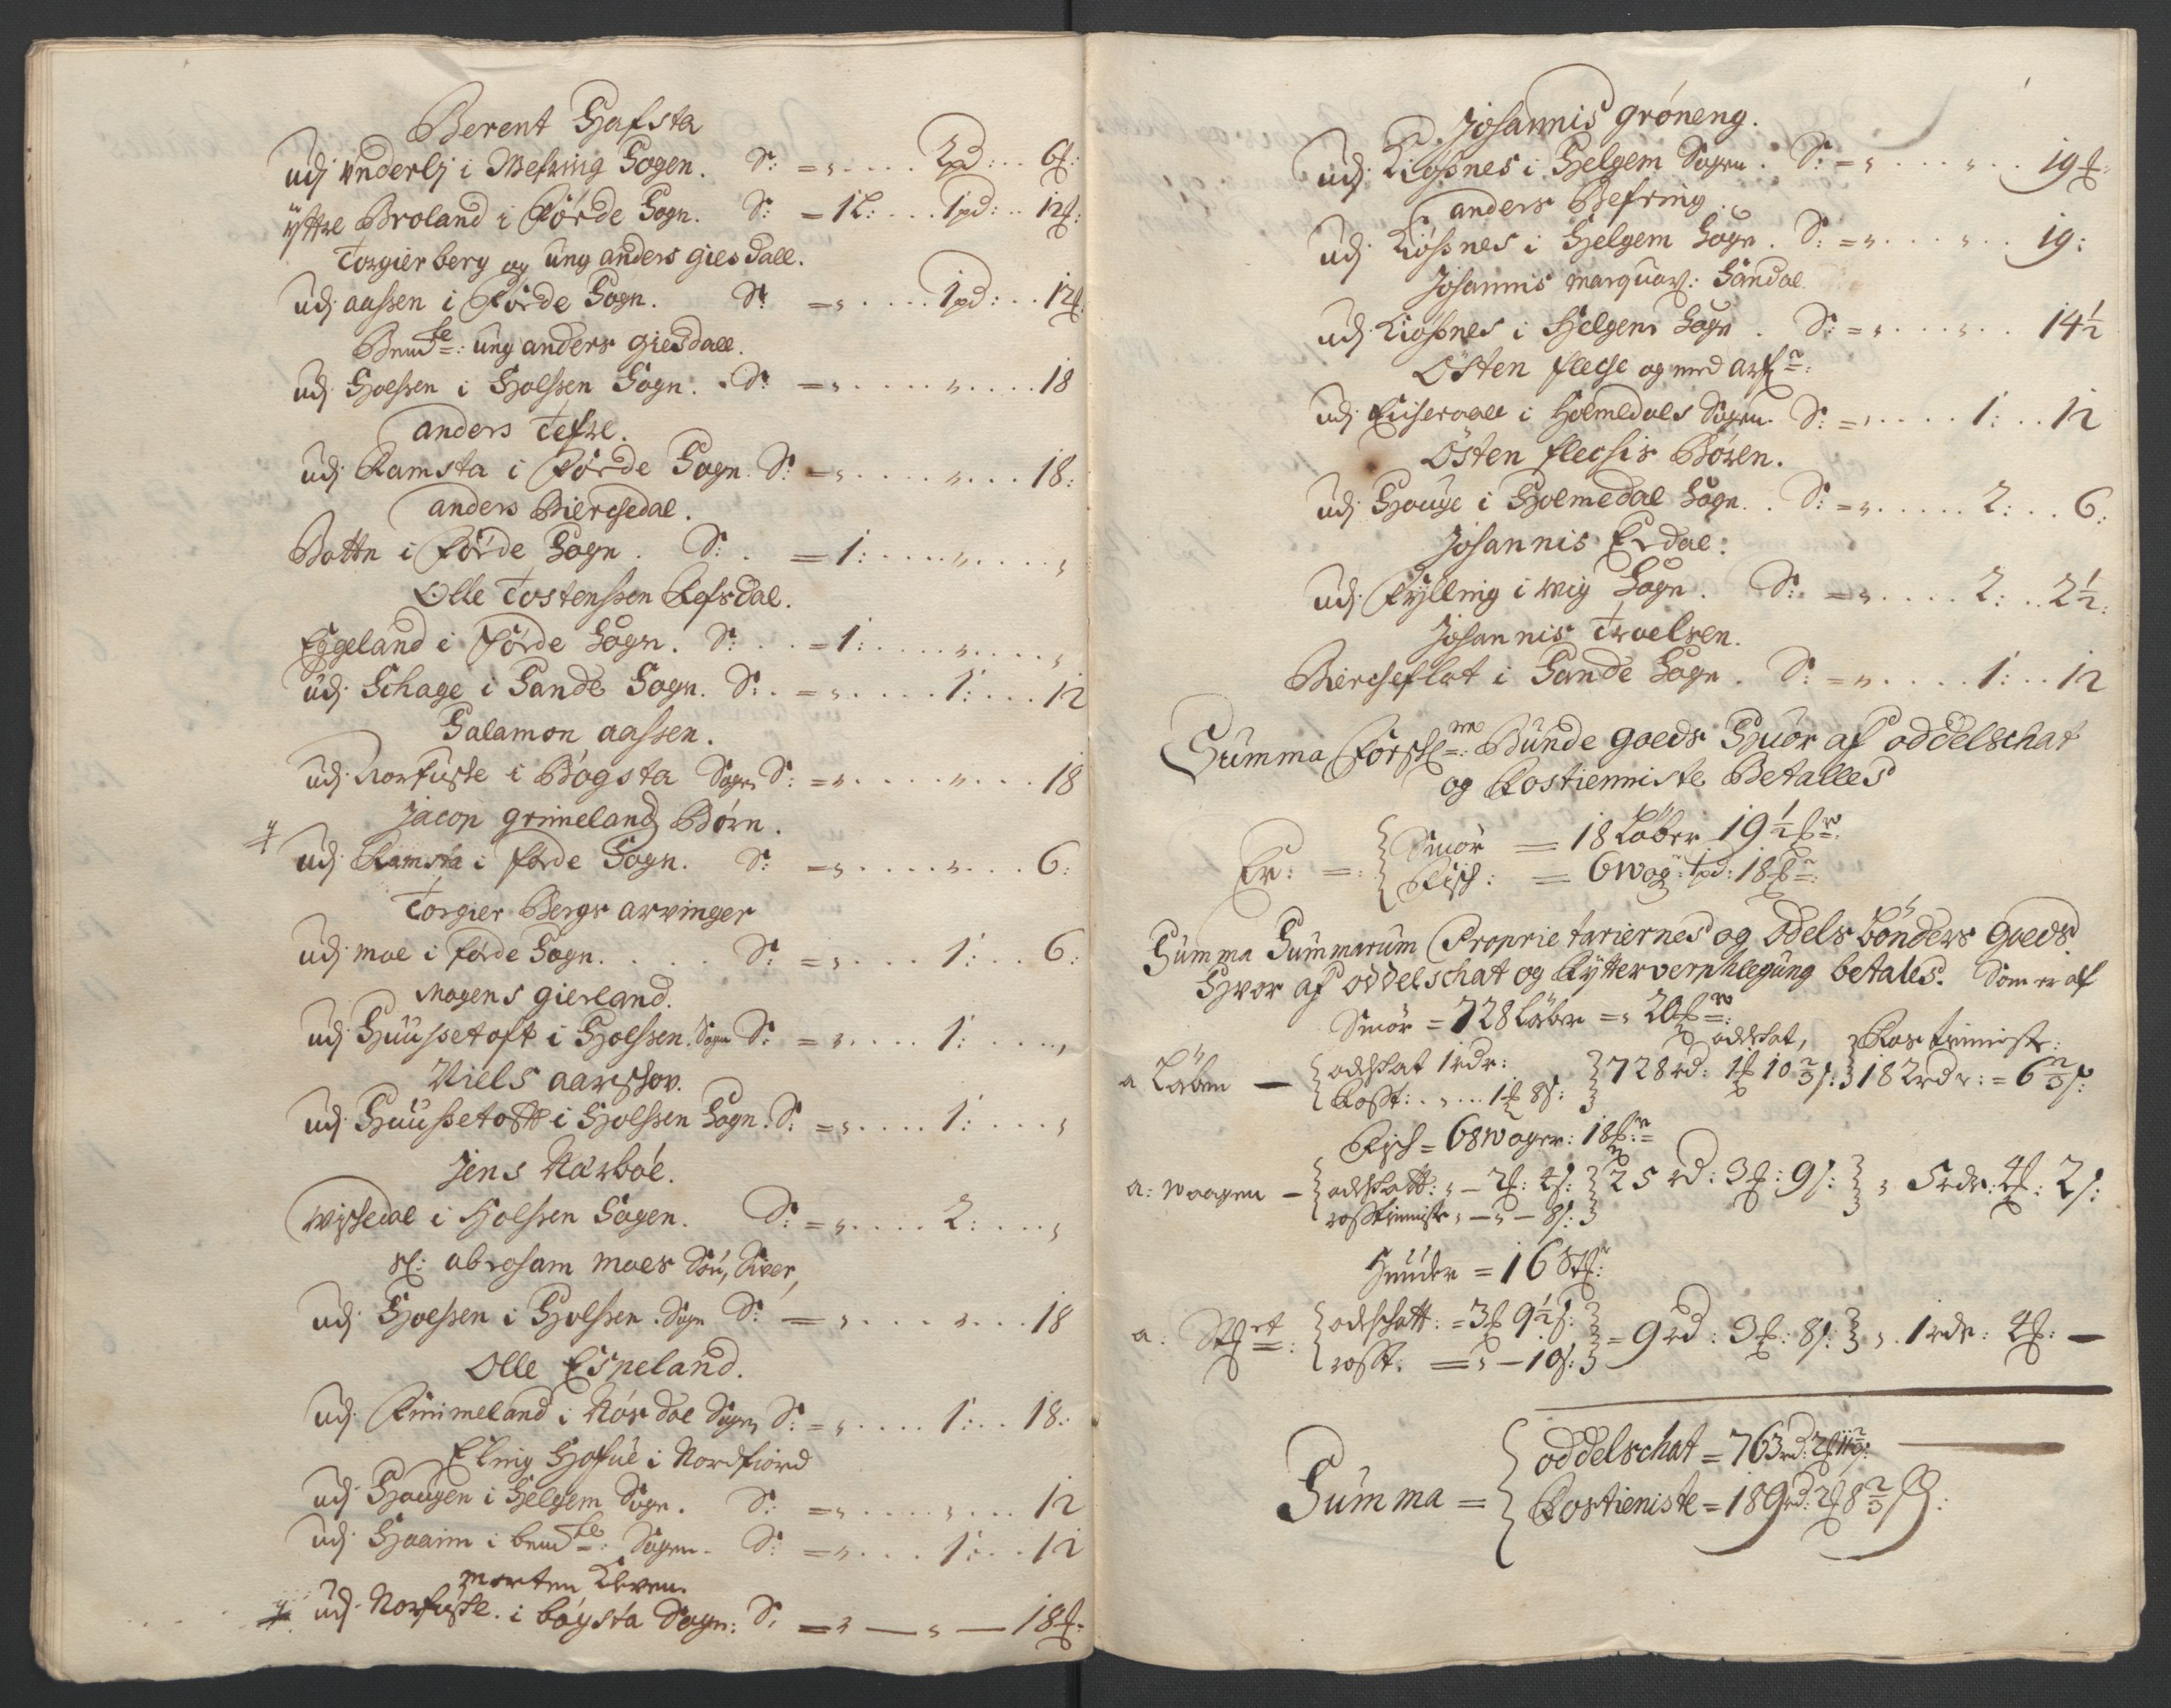 Berent Hafsta
udj Underlj i Wefring Sogen. S: = „ .... 2pd: .. 6℔:
ÿttre Broland i Förde Sogn. S: = 1L: ... 1pd: .. 12℔:
Torgier berg og ung anders giesdall.
udj aassen i Förde Sogn. S: = „ .... 1pd: .. 12℔.
Bemte: ung anders giesdall.
udj Holssen i Holssen Sogn. S: = „ .... „ .... 18
anders Tefre.
udj Ramsta i Förde Sogn. S: = „ .... „ ... 18:
anders Bierchedal.
Bottn i Förde Sogn. S: . = 1: .... „ .... „
Olle Tostenssen Refsdal.
Eggeland i Förde Sogn. S: . . = 1: .... „ .... „
udj Schage i Sande Sogn. S: . = „ .... 1: ... 12
Salamon aassen.
udj Norfuste i Bögsta Sogn S: = „ .... „ ... 18
Jacop grimeland Börn.
udj Ramsta i förde Sogn. S: = „ .... „ ... 6:
Torgier Bergs arvinger
udj moe i förde Sogn. . . . S: = „ ... 1: .. 6:
Mogens gierland.
udj Huussetoft i Holssen Sogn S: = „ .... 1: ... „
Niels aarschov.
udj Huussetoft i Holssen Sogn. S: = „ .... 1: ... „
Jens Narböe.
Wissedal i Holssen Sogen. S: = „ .... 2: ... „
Sl: abraham moes Sön, Siver,
udj Holssen i Holssen Sogn S: = „ .... „ ... 18
Olle Espeland.
udj Rimmeland i Nösdal Sogn S: = „ .... 1: .. 18:
Elling Hofue i Nordfiord
udj Haugen i Helgem Sogn. S: = „ .... „ ... 12
udj Haaim i bemte: Sogen. S: = „ ... 1: .. 12
morten Kleven.
udj Norfuste i bögsta Sogn: S. = „ — „ — 18℔.
Johannis gröneng.
udj Kiossnes i Helgem Sogen. S: = „ .... „ .. 19℔.
anders Befring.
udj Kiössnes i Helgem Sogn. S: = „ .... „ .. 19:
Johannis marquar: Sandal.
udj Kiössnes i Helgem Sogn. S: = „ .... „ .. 14½
Östen flecse og med arfn:
udj Eicheraall i Holmedals Sogen. S: = „ .... 1: .. 12
Östen flechis Börn.
udj Houge i Holmedal Sogn. S: = „ .... 2: .. 6:
Johannis Erdal:
udj Fylling i wiig Sogn. S: = „ .... 2: .. 2½:
Johannis Troelsen.
Biercheflot i Sande Sogn. S: = „ .... 1: .. 12
Summa Forschne: Bunde goeds Huor af oddelschat
og Rostienniste Betalles
Er: = { Smör = 18 Löber 19½℔r:
Fisch: = 6 wog: 1pd: 18℔r:
Summa Summarum Proprietariernes og Odelsbönders goeds
Hvor af oddelschat og Rytterverphlegüng betales. Som er af
Smör = 728 Löber = „ 20℔r:
odelskat, Rostienniste:
a Löben — { odelskat 1 rdr: } 728 rd: 1℔ 10⅔ s: } 182 rdr: = 6⅔ s:
Rosst: . „ ... 1℔ 8s:
Fisch = 68 woger: 18℔r:
a: waagen — { odelskatt: „ — 2℔: 4s: } 25 rd: 3℔: 9s: } „ 5 rdr: 4℔: 2s:
rosstienniste „ — „ — 8s:
Huuder = 16 Stk:
a: Stket: { odelschatt: = 3℔ 9½s: } = 9 rd: 3℔: 8s: } „ 1 rdr: 4℔: —
rosst. = „ — 10s:
Summa = { oddelschat = 763 rd: 2℔ 11⅔ s:
Rostieniste = 189 rd: 2℔ 8⅔ s: